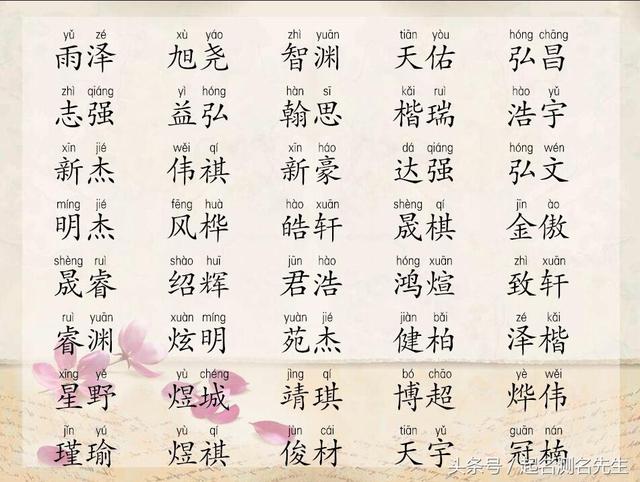 yǔ zé xù yáo zhì yuān tiān yòu hóng chāng
雨泽 旭尧 智渊 天佑 弘昌
zhì qiáng yì hóng hàn sī kǎi ruì hào yǔ
志强 益弘 翰思 楷瑞 浩宇
xīn jié wěi qí xīn háo dá qiáng hóng wén
新杰 伟祺 新豪 达强 弘文
míng jié fēng huà hào xuān shèng qí jīn ào
明杰 风桦 皓轩 晟棋 金傲
shèng ruì shào huī jūn hào hóng xuān zhì xuān
晟睿 绍辉 君浩 鸿煊 致轩
ruì yuān xuàn míng yuàn jié jiàn bǎi zé kǎi
睿渊 炫明 苑杰 健柏 泽楷
xīng yě yù chéng jìng qí bó chāo yè wěi
星野 煜城 靖琪 博超 烨伟
jǐn yú yù qí jùn cái tiān yǔ guān nán
瑾瑜 煜祺 俊材 天宇 冠楠
头条号 / 起名测名先生